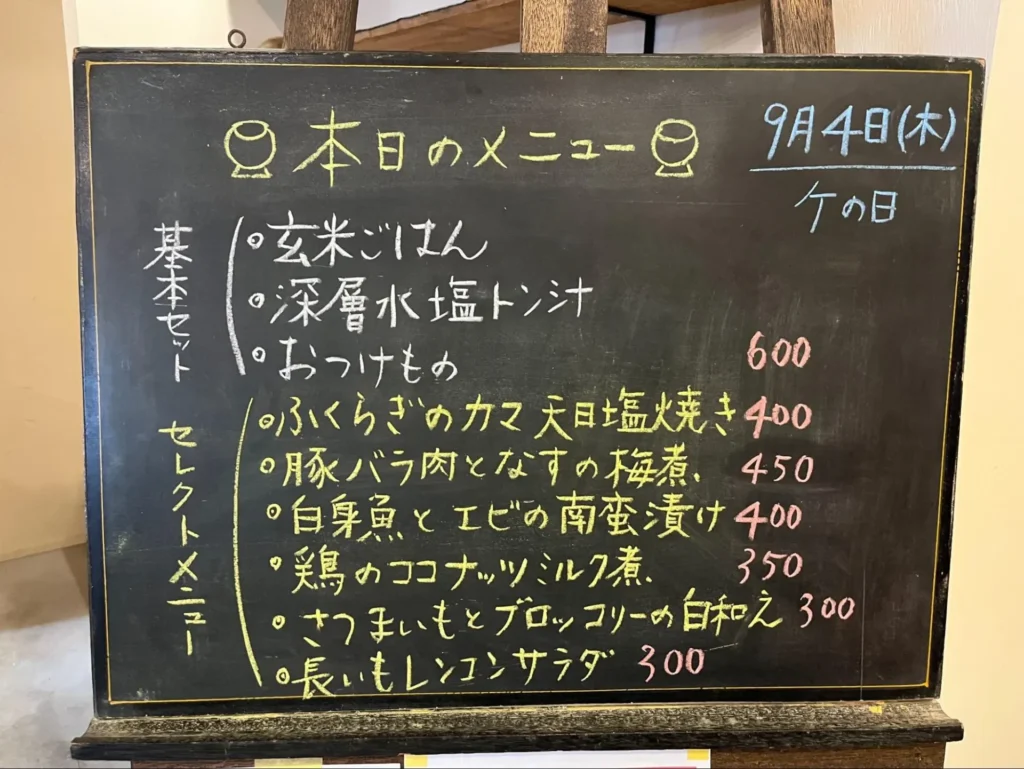 本日のメニュー
9月4日(木)
ケの日
基本セット
玄米ごはん
深層水塩トン汁
おつけもの 600
セレクトメニュー
ふくらぎのカマ天日塩焼き 400
豚バラ肉となすの梅煮 450
白身魚とエビの南蛮漬け 400
鶏のココナッツミルク煮 350
さつまいもとブロッコリーの白和え 300
長いもレンコンサラダ 300